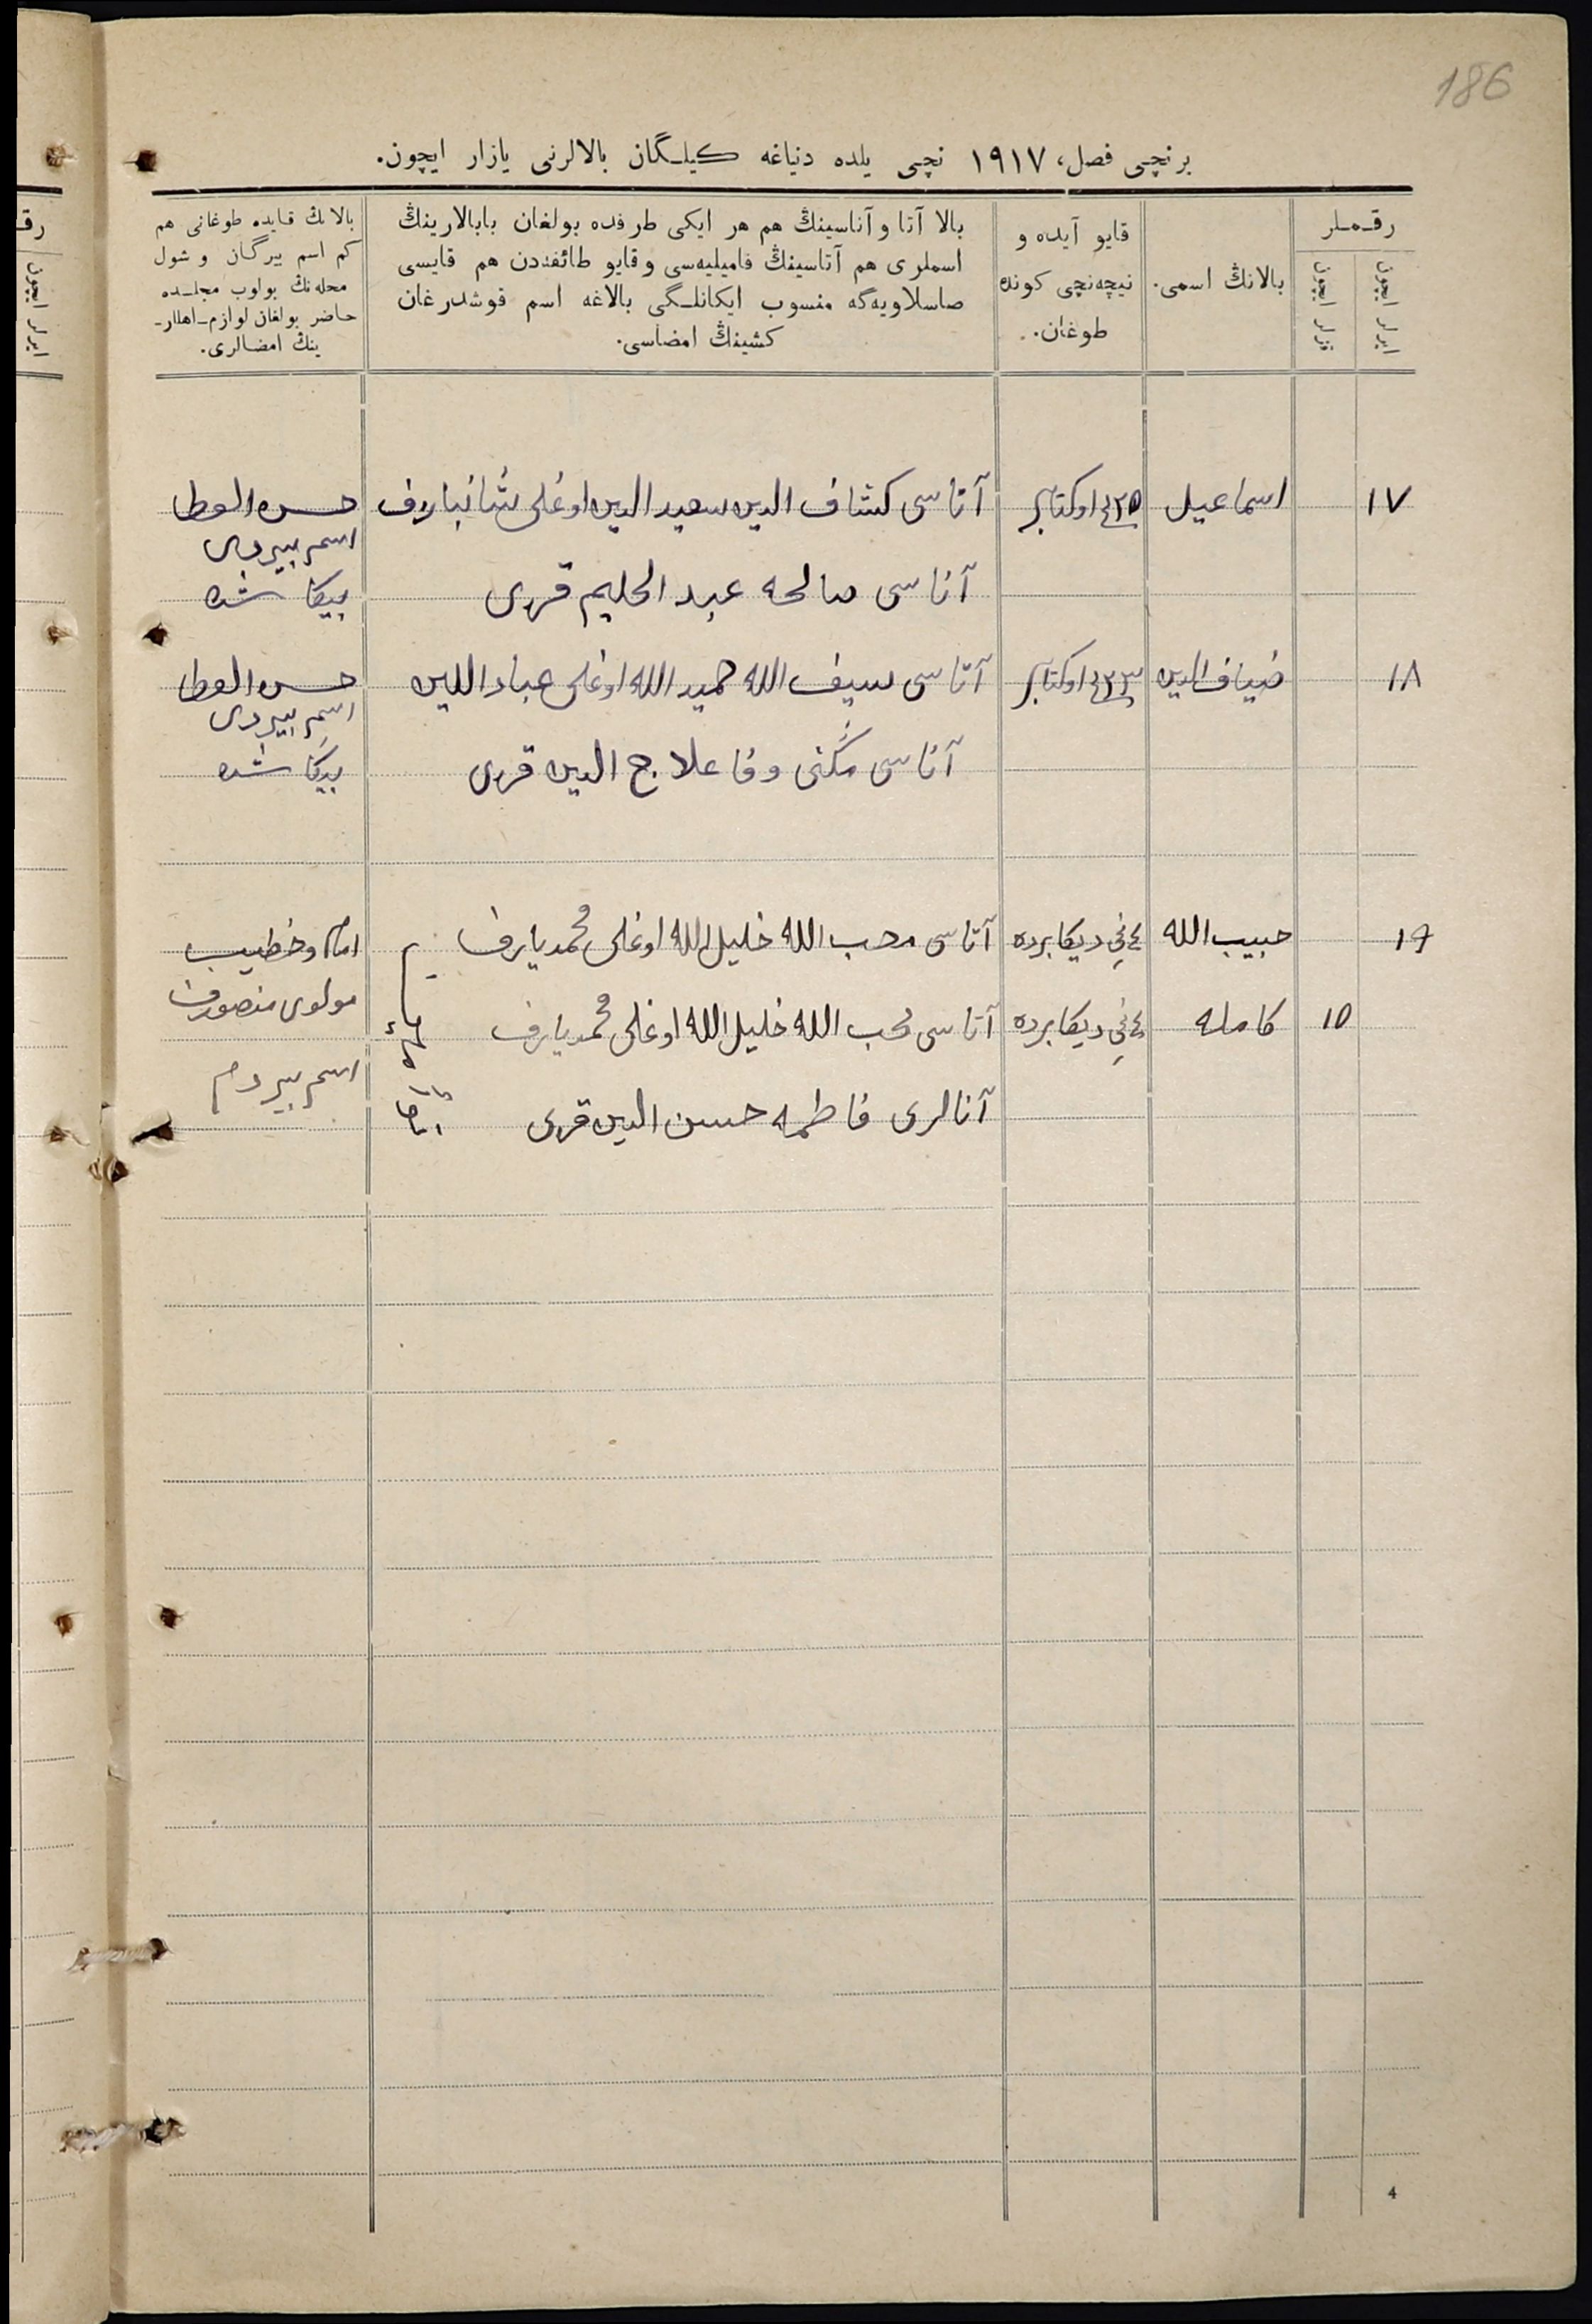 186
برنچی فصل، ١٩١٧ نچی یلده دنیاغه کیلگان بالالرنی یازار ایچون.
رقملر
ایرلر ایچون
قزلر ایچون
بالانڭ اسمی.
قایو آیده و
نیچه‌نچی کونده
طوغان.
بالا آتا و آناسینڭ هم هر ایکی طرفده بولغان بابالارینڭ
اسملری هم آتاسینڭ فامیلیه‌سی و قایو طائفه‌دن هم قایسی
صاسلاویه‌گه منسوب ایکانلگی بالاغه اسم قوشدرغان
کشینڭ امضاسی.
بالانڭ قایده طوغانی هم
کم اسم بیرگان و شول
محله‌نڭ بولوب مجلسده
حاضر بولغان لوازم اهللار
ینڭ امضالری.
١٧ اسماعیل ٢٥ اوکتابر آتاسی کشاف الدین سعید الدین اوغلی
اسم بیردی
آناسی صالحه عبد الحلیم قزی
١٨ ضیاف الدین ٢٣ اوکتابر آتاسی سیف الله حمید الله اوغلی
اسم بیردی
آناسی وفا علاج الدین قزی
١٩ حبیب الله ٤ نچی دیکابرده آتاسی محب الله خلیل الله اوغلی محمدیارف امام و خطیب
١٥ کامله ٤ نچی دیکابرده آتاسی محب الله خلیل الله اوغلی محمدیارف مولوی منصورف
آنالری فاطمه حسن الدین قزی اسم بیردم
4